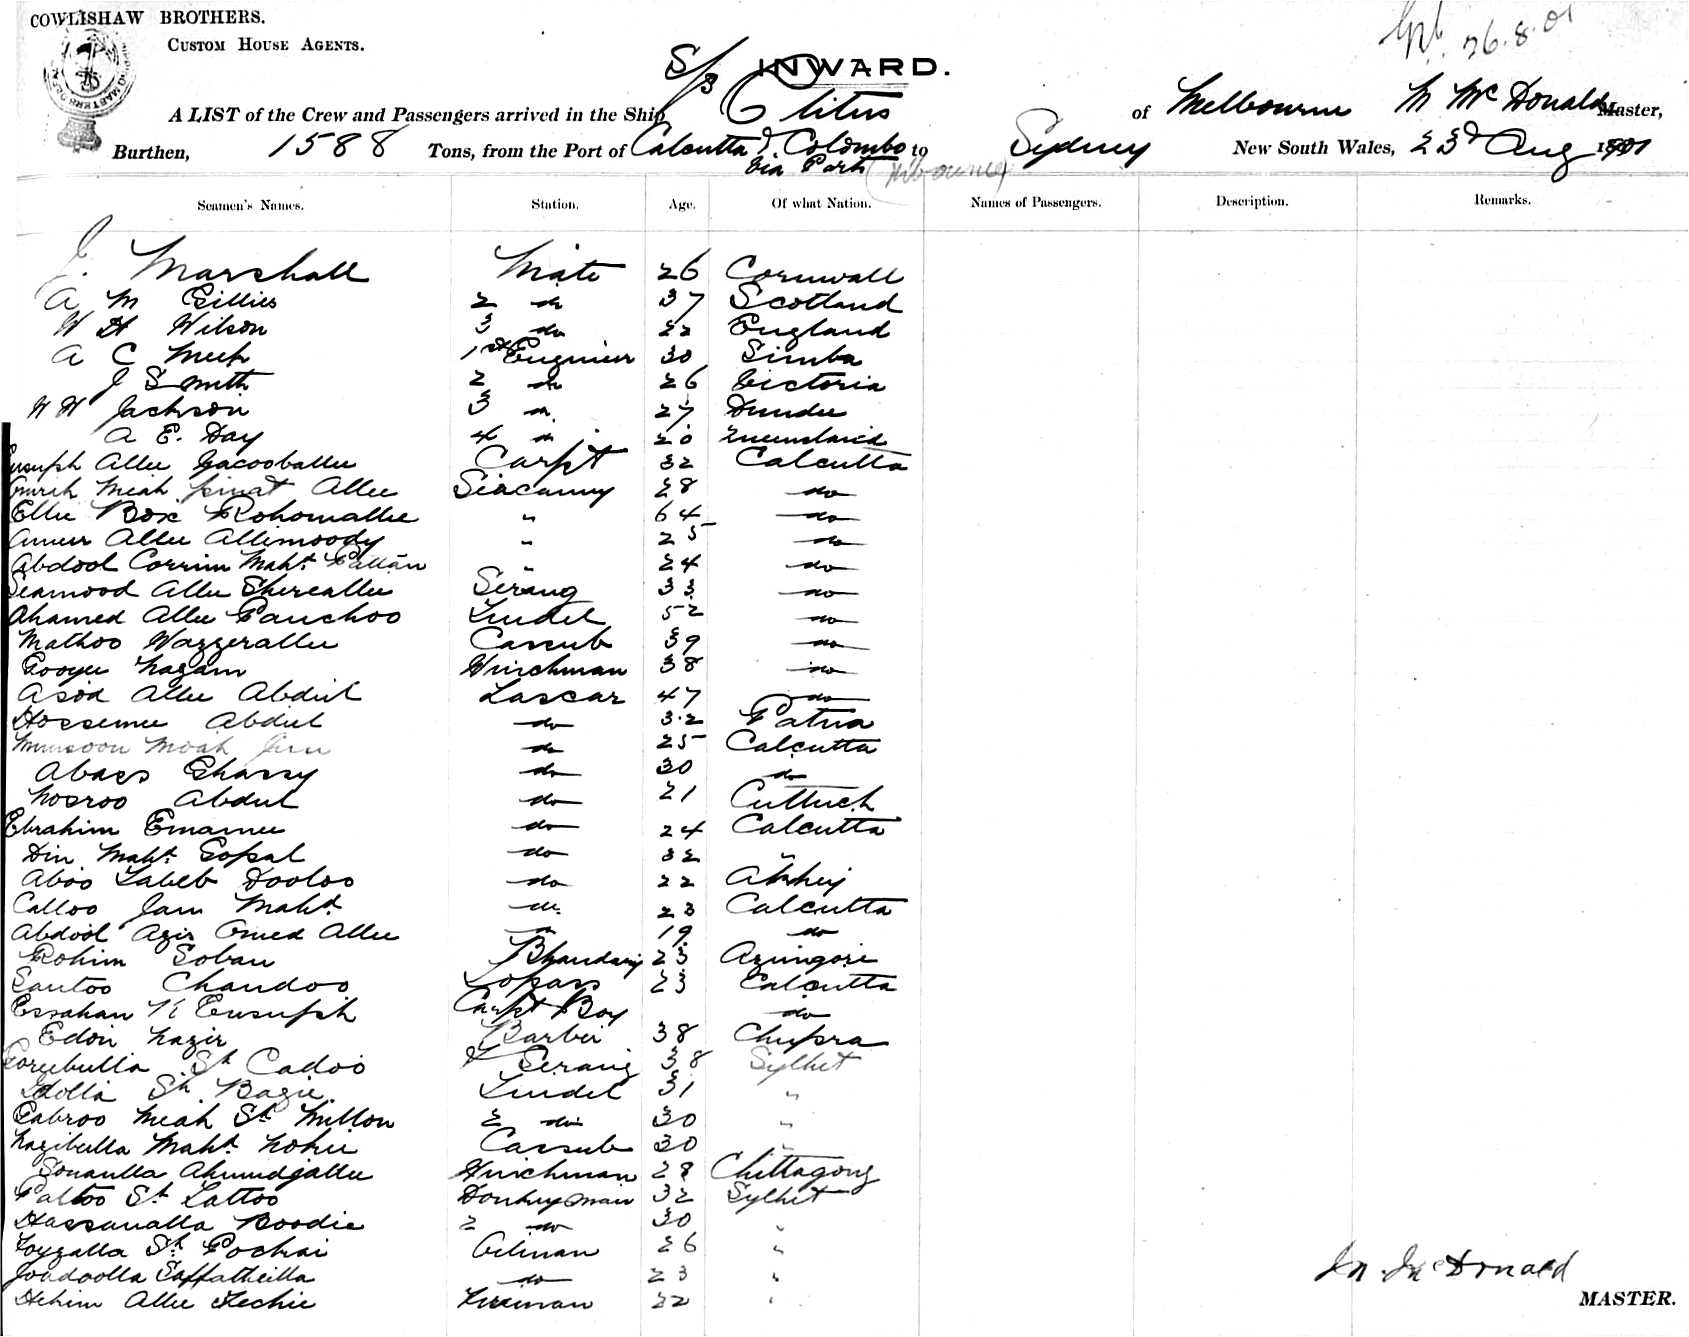 COWLISHAW BROTHERS.
CUSTOM HOUSE AGENTS.
26.8.01
S/s INWARD.
A LIST of the Crew and Passengers arrived in the Ship Clitus of Melbourne M McDonald Master,
Burthen, 1588 Tons, from the Port of Calcutta & Colombo to Sydney New South Wales, 23d Aug 1901
Via Ports (Melbourne)
Seamen's Names. Station. Age. Of what Nation. Names of Passengers. Description. Remarks.
J. Marshall Mate 26 Cornwall
A M Gillies 2 do 37 Scotland
W H Wilson 3 do 22 England
A C Meek 1st Engineer 30 Simba
J Smith 2 do 26 Victoria
W W Jackson 3 do 27 Dundee
A E. Day 4 do 20 Queensland
Eusuph Allee Yacooballee Carpt 32 Calcutta
Meah Allee Seacunny 28 do
Ellee Box Rohomallee " 64 do
Ameer Allee Allimoody " 25 do
Abdool Corrim Mahd. Pattan " 24 do
Seamood Allee Shereallee Serang 33 do
Ahamed Allee Panchoo Tindel 52 do
Mathoo Wazzerallee Cassub 39 do
Gooyee Nazam Winchman 38 do
Asod Allee Abdul Lascar 47 do
Hossenee Abdul do 32 Patna
Munsoon Moah do 25 Calcutta
Abaes Ghassy do 30 do
Nosroo Abdul do 21 Cuttuck
Ebrahim Emamee do 24 Calcutta
Din Mahd. Gopal do 32 "
Aboo Labeb Dooloo do 22
Calloo Jam Mahd do 23 Calcutta
Abdool Azis Omed Allee do 19 do
Rohim Soban Bhandary 23 Azimgore
Santoo Chandoo Topass 23 Calcutta
Essahan K Eusuph Carpt Boy do
Edoo Nazir Barber 38 Chupra
Goreebulla Sk Cadoo Serang 38 Sylhet
Sk Bazie Tindel 31 "
Gabroo Meah Sk Mullon 2 do 30 "
Nazibulla Mahd. Nokie Cassub 30 "
Sonaulla Ahmudjallee Winchman 28 Chittagong
Paltoo Sk Lattoo Donkeyman 32 Sylhet
Hassanalla Boodie 2 do 30 "
Toyzalla Sk. Pochai Oilman 26 "
do 23 "
Hehim Allee Fireman 22 "
M. McDonald
MASTER.